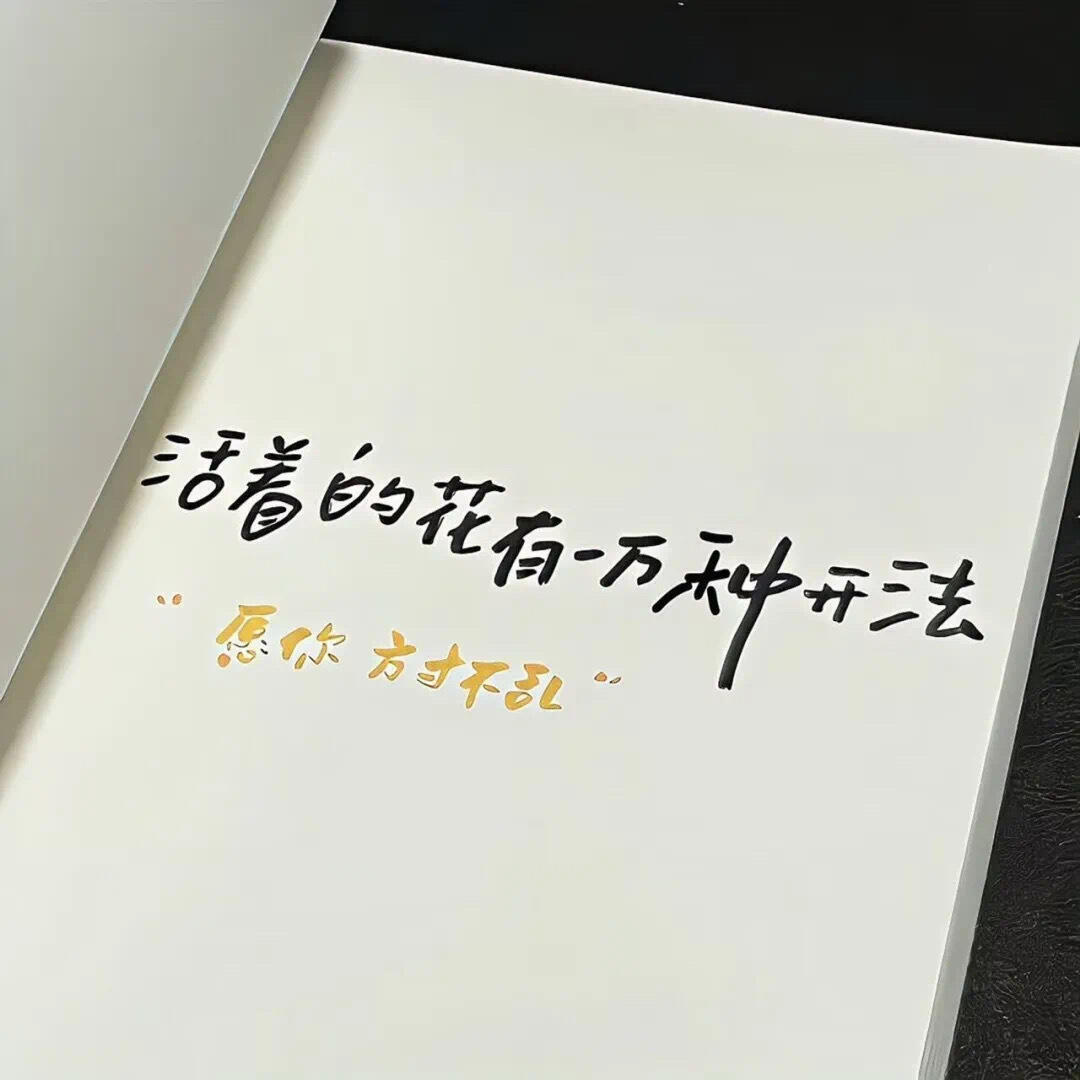 活着的花有一万种开法
“愿你 方寸不乱”